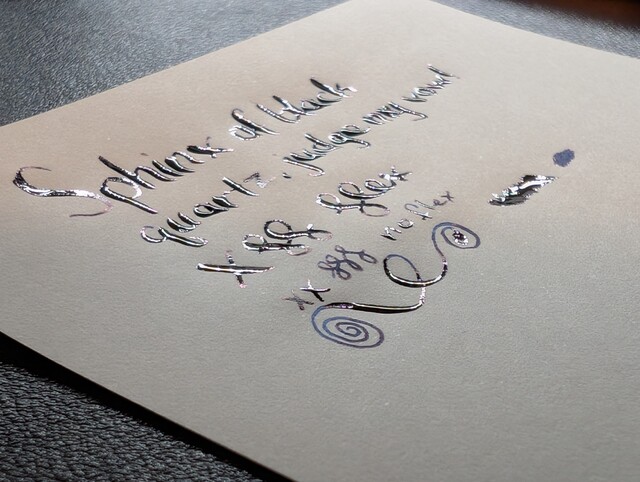 Sphinx of black
quartz, judge my vow!
X fff flex
xx fff no flex